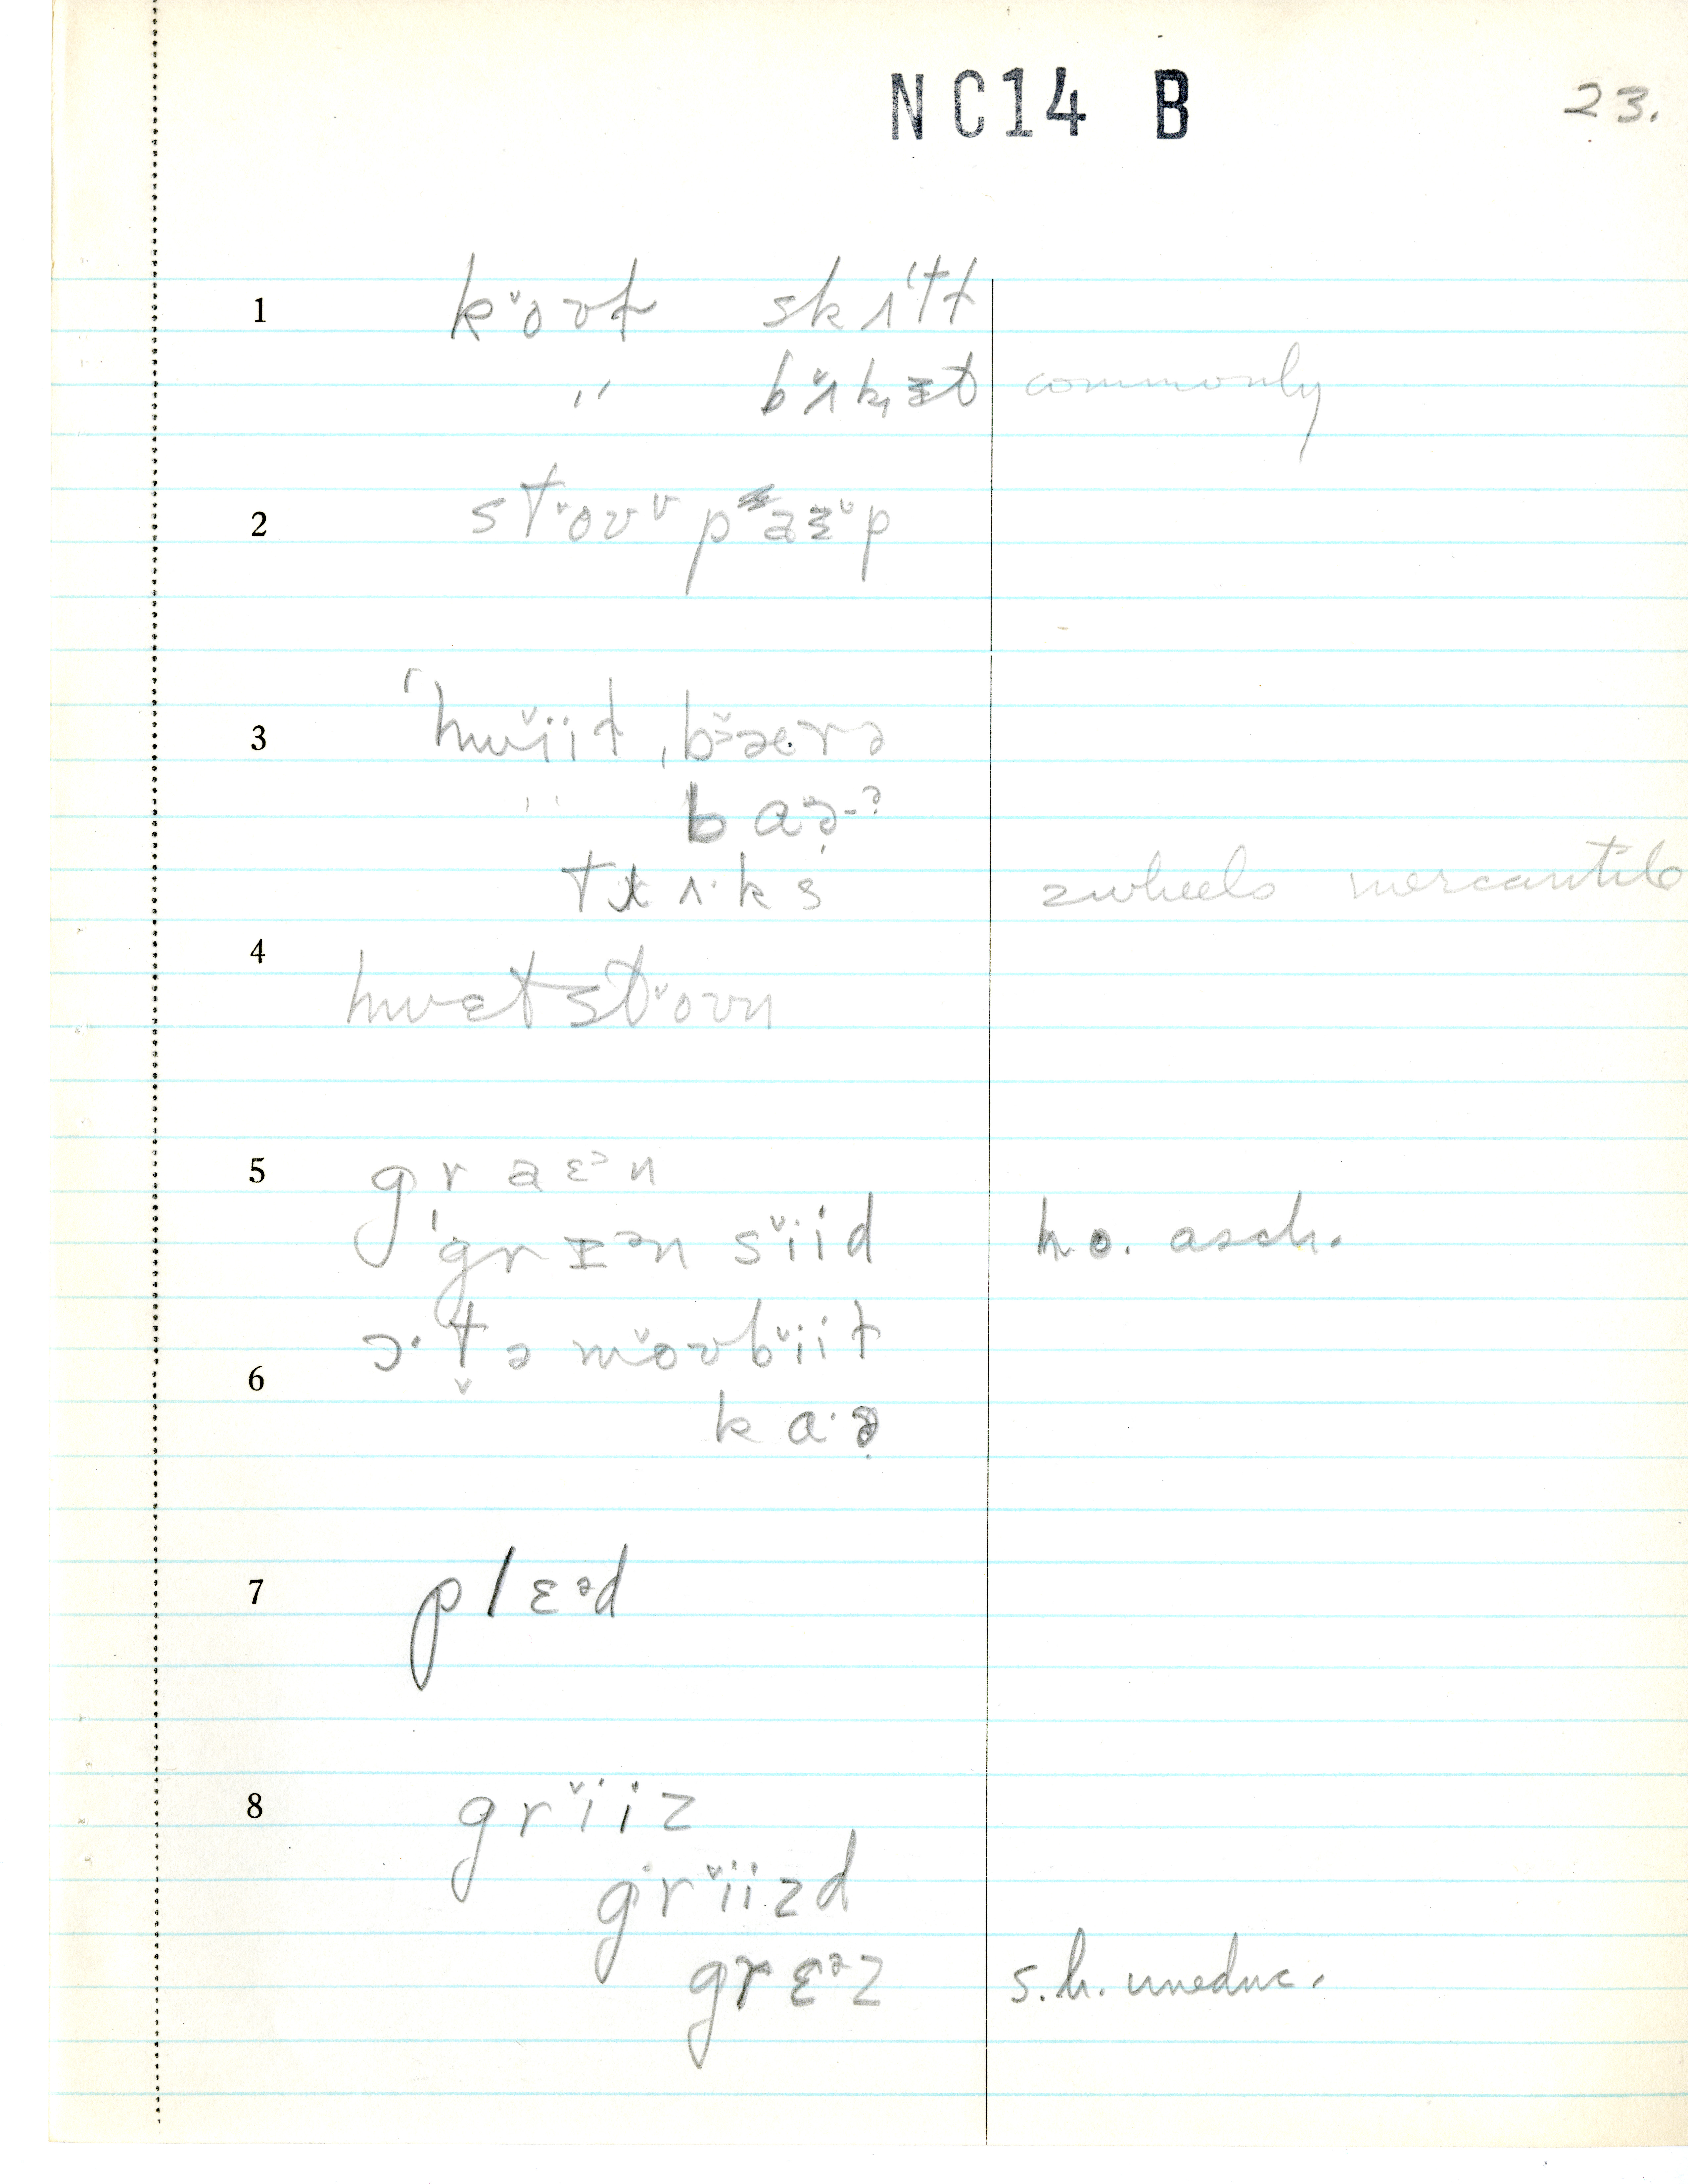 NC14 B 23.
1 k ˇoʊt skɪˈtt
〃 bˇʌk̡ɪt commonly
2 stˇoʊᶷ paɛᶷp
3 ˈhwˇiit ˌbᵊæ.rə
〃 baə̣-ˀ
trʌ·ks 2 wheels mercantile
4 hwɛtstˇoʊn
5 graɛᵊn
ˈgrɪᵊn sˇiid h.o. asch.
6 ɔ·t̬əmˇoʊbˇiit
ka·ə̣
7 plɛᵊd
8 grˇiiz
grˇiizd
grɛᵊz s.h. uneduc.